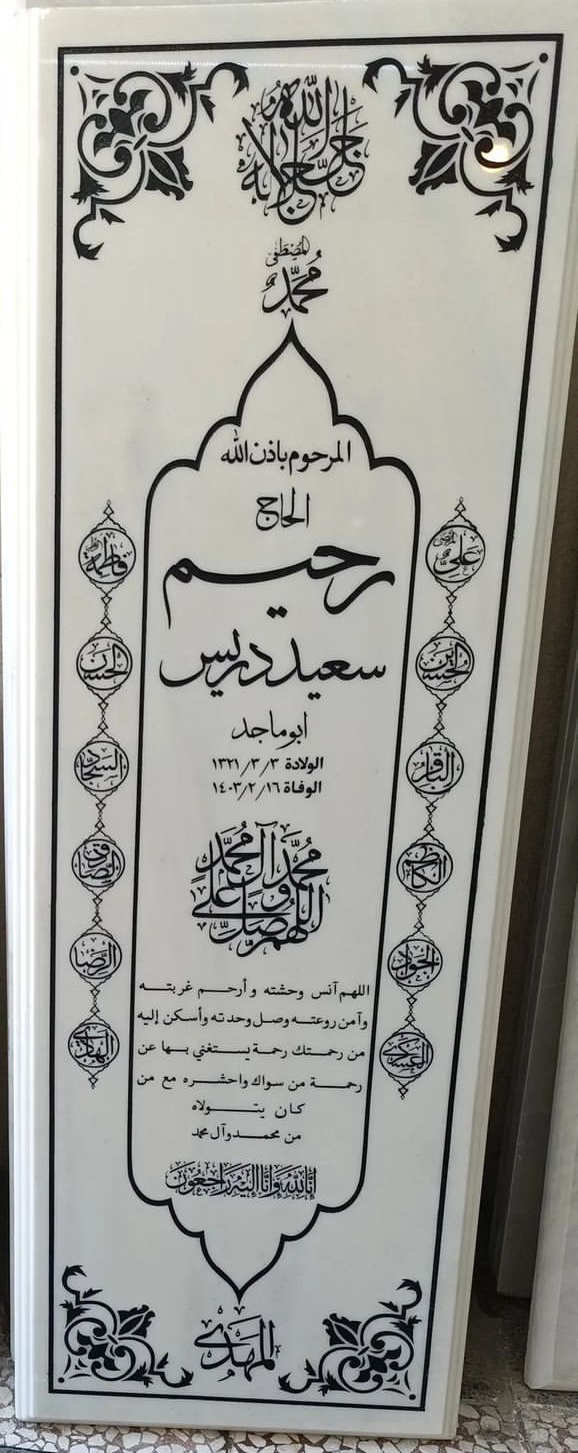 الله جل جلاله
المصطفى
محمد
المرحوم باذن الله
الحاج
رحيم
سعيد دريس
ابو ماجد
الولادة ١٣٢١/٣/٣
الوفاة ١٤٠٣/٢/١٦
اللهم صل على محمد وآل محمد
اللهم آنس وحشته وأرحم غربته
وآمن روعته وصل وحدته وأسكن إليه
من رحمتك رحمة يستغني بها عن
رحمة من سواك واحشره مع من
كان يتولاه
من محمد وآل محمد
إنا لله وإنا إليه راجعون
المهدي
علي
الحسين
الباقر
الكاظم
الجواد
العسكري
فاطمة
الحسن
السجاد
الصادق
الرضا
الهادي